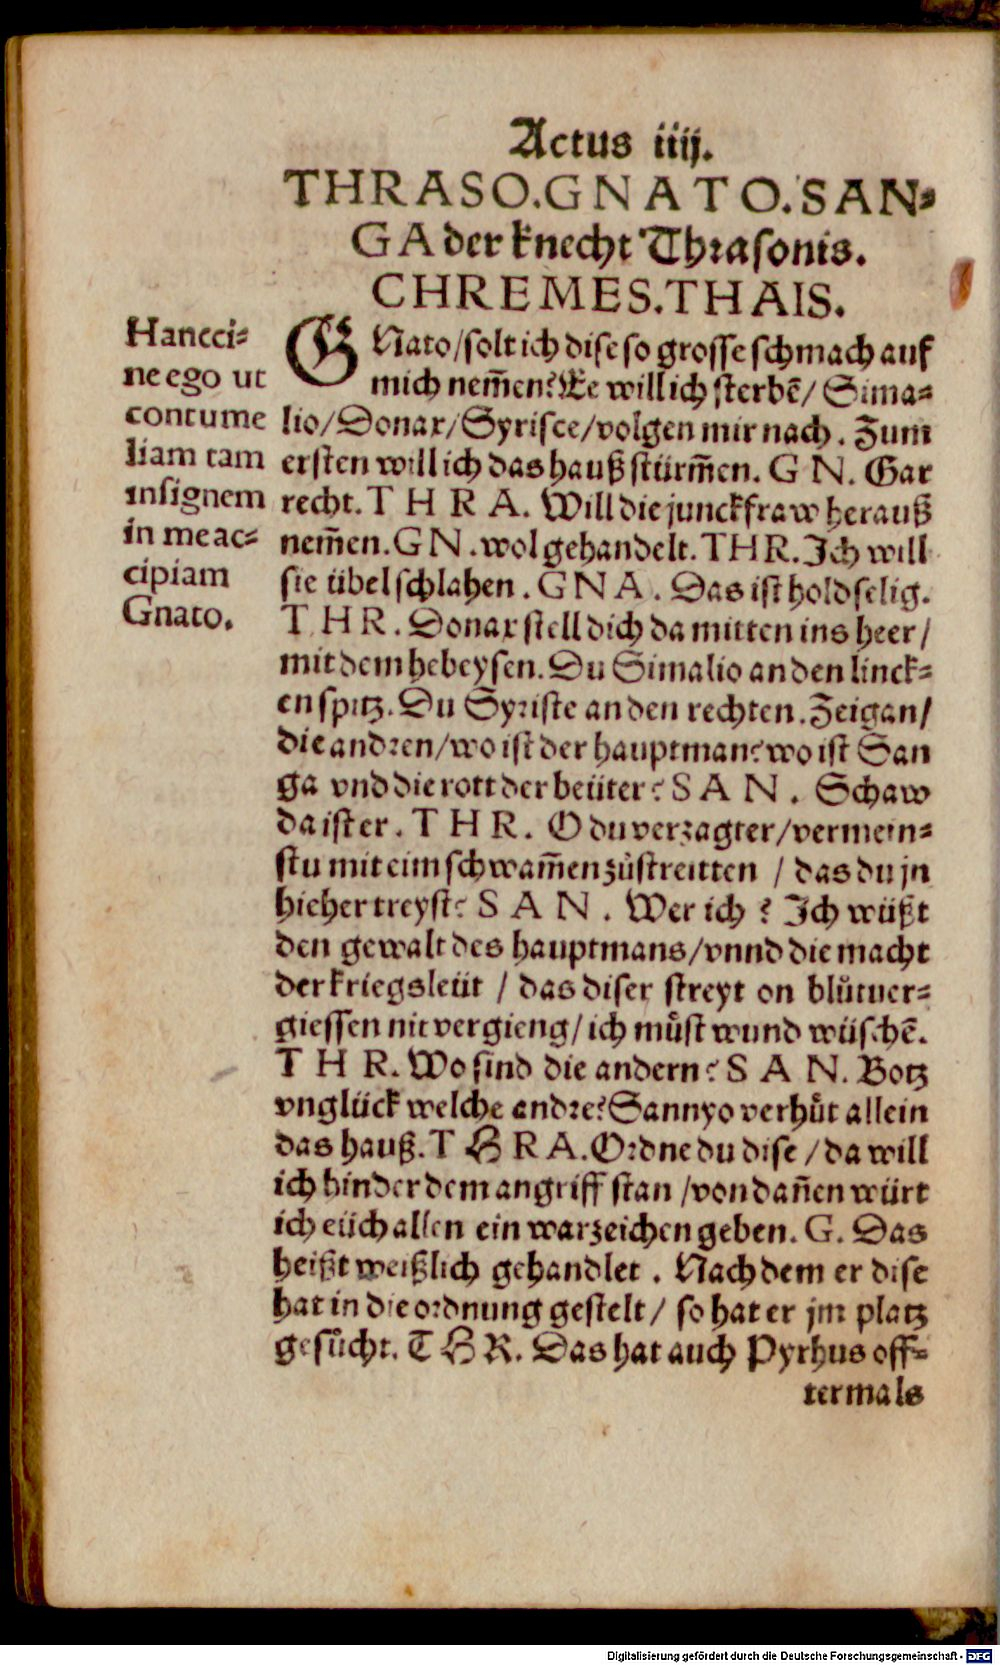 Actus iiij.
THRASO.GNATO.SAN⸗
GA der knecht Thrasonis.
CHREMES.THAIS.
Hancci⸗
ne ego ut
contume
liam tam
insignem
in me ac⸗
cipiam
Gnato.
GNato/solt ich dise so grosse schmach auf
mich nem̄en? Ee will ich sterbē/ Sima⸗
lio/Donax/Syrisce/volgen mir nach. Zum
ersten will ich das hauß stürm̄en. GN. Gar
recht. THRA. Will die junckfraw herauß
nem̄en. GN. wol gehandelt. THR. Ich will
sie übel schlahen. GNA. Das ist holdselig.
THR. Donax stell dich da mitten ins heer/
mit dem hebeysen. Du Simalio an den linck⸗
en spitz. Du Syriste an den rechten. Zeig an/
die andren/wo ist der hauptman? wo ist San
ga vnd die rott der beüter? SAN. Schaw
da ist er. THR. O du verzagter/vermein⸗
stu mit eim schwam̄en zůstreitten / das du jn
hieher treyst? SAN. Wer ich? Ich wüßt
den gewalt des hauptmans/vnnd die macht
der kriegsleüt / das diser streyt on blůtuer⸗
giessen nit vergieng/ich můst wund wüschē.
THR. Wo sind die andern? SAN. Botz
vnglück welche andre? Sannyo verhůt allein
das hauß. THRA. Ordne du dise/da will
ich hinder dem angriff stan/von dan̄en würt
ich eüch allen ein warzeichen geben. G. Das
heißt weißlich gehandlet. Nach dem er dise
hat in die ordnung gestelt/ so hat er jm platz
gesůcht. THR. Das hat auch Pyrhus off⸗
termals
Digitalisierung gefördert durch die Deutsche Forschungsgemeinschaft - DFG